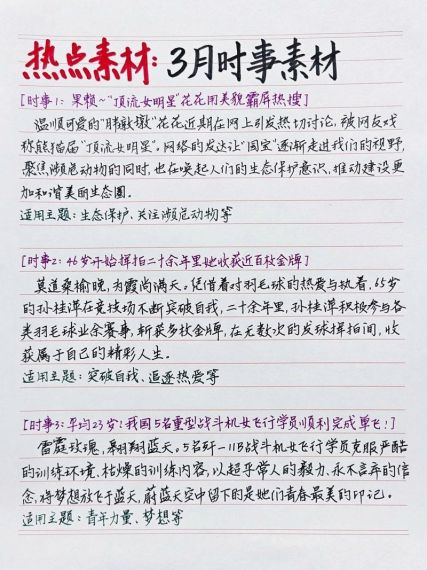 热点素材：3月时事素材
[时事1：果赖~"顶流女明星"花花用美貌霸屏热搜]
温顺可爱的"胖敦墩"花花近期在网上引发热切讨论，被网友戏
称熊猫届"顶流女明星"。网络的发达让"国宝"逐渐走进我们的视野，
聚焦濒危动物的同时，也在唤起人们的生态保护意识，推动建设更
加和谐美丽生态圈。
适用主题：生态保护、关注濒危动物等
[时事2：46岁开始挥拍二十余年里她收获近百枚金牌]
莫道桑榆晚，为霞尚满天。凭借着对羽毛球的热爱与执着，65岁
的孙桂萍在竞技场不断突破自我，二十余年里，孙桂萍积极参与各
类羽毛球业余赛事，斩获多枚金牌，在无数次的发球挥拍间，收
获属于自己的精彩人生。
适用主题：突破自我、追逐热爱等
[时事3：平均23岁！我国5名重型战斗机女飞行学员顺利完成单飞！]
雷霆玫瑰，翱翔蓝天。5名歼-11B战斗机女飞行学员克服严酷
的训练环境、枯燥的训练内容，以超乎常人的毅力、永不言弃的信
念，将梦想放飞于蓝天，蔚蓝天空中留下的是她们青春最美的印记。
适用主题：青年力量、梦想等